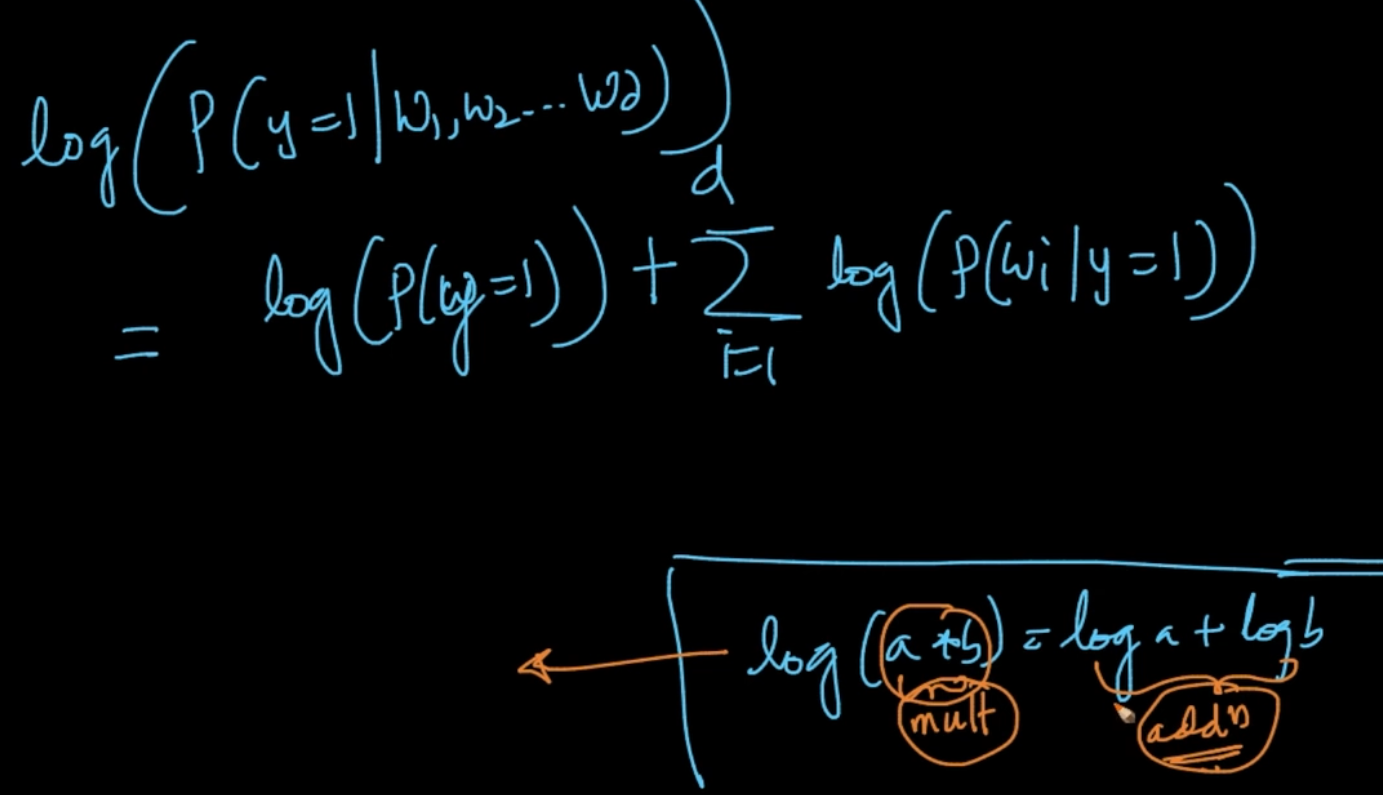 log(P(y=1|w1,w2...wd))
= log(P(y=1)) + d∑i=1 log(P(wi|y=1))
log(a*b) = log a + log b
mult addn